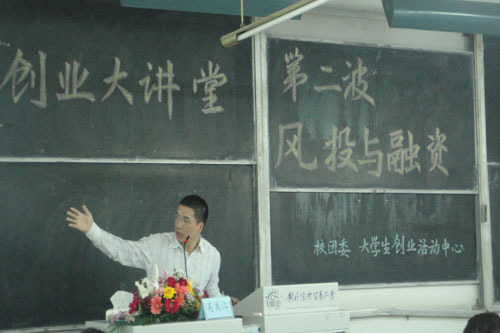 创业大讲堂
第二波
风投与融资
校团委 大学生创业活动中心